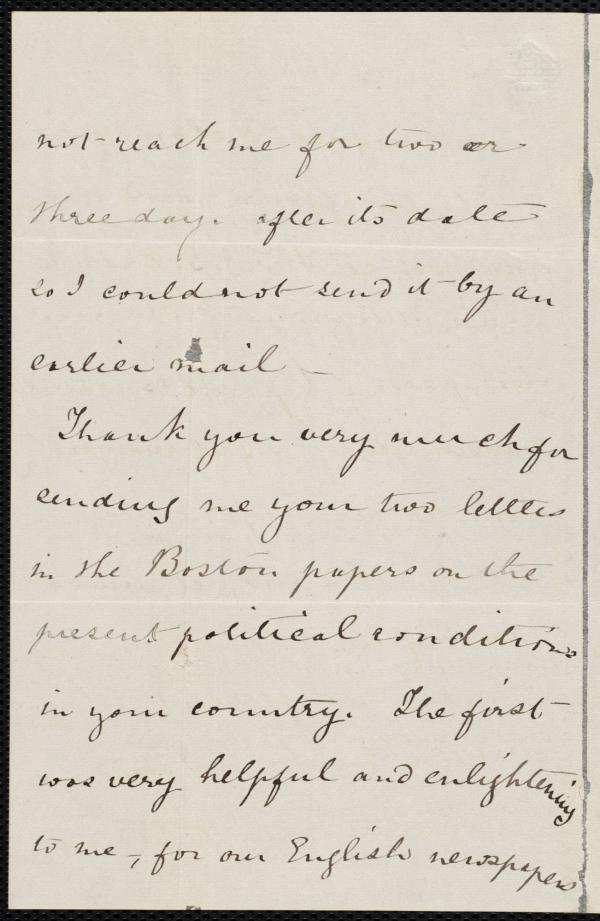 not reach me for two or
three days after its date
so I could not send it by an
earlier mail –
Thank you very much for
sending me your two letters
in the Boston papers on the
present political conditions
in your country. The first
was very helpful and enlightening
to me –, for our English newspapers